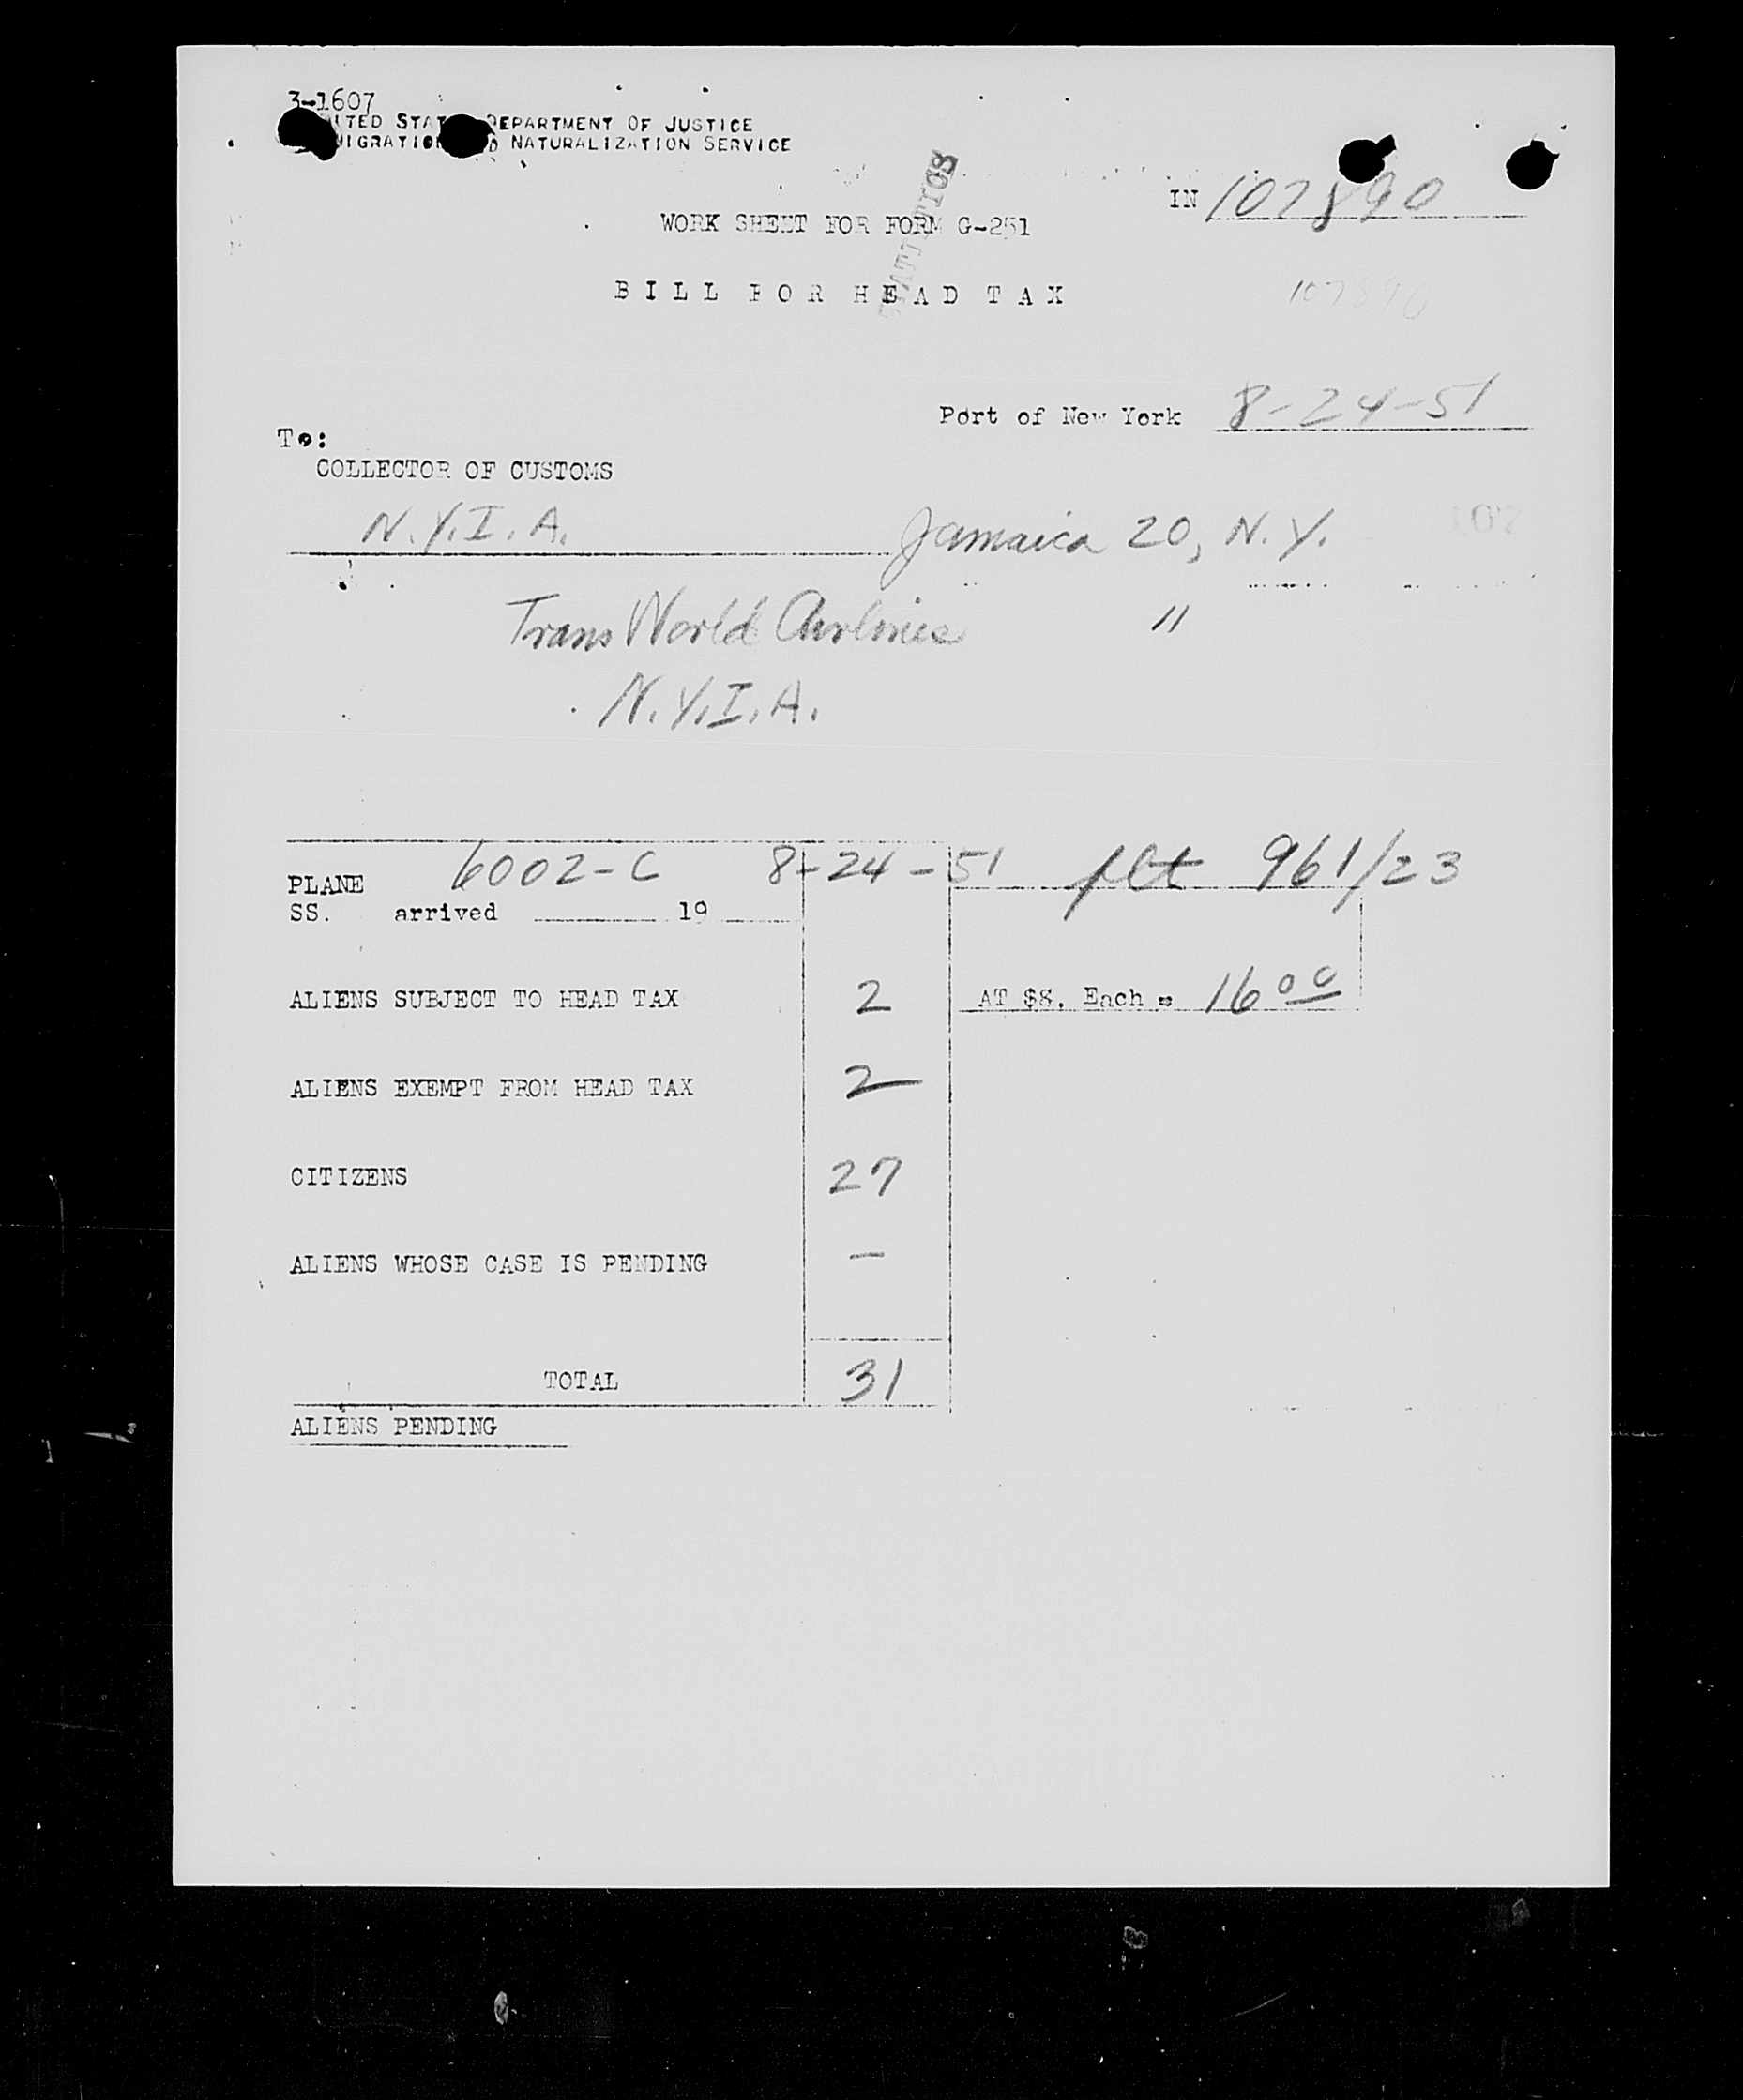 3-1607
UNITED STATES DEPARTMENT OF JUSTICE
IMMIGRATION AND NATURALIZATION SERVICE
STATISTICS
IN 107890
WORK SHEET FOR FORM G-251
BILL FOR HEAD TAX
107890
Port of New York 8-24-51
To:
COLLECTOR OF CUSTOMS
N.Y.I.A. Jamaica 20, N.Y.
Trans World Airlines "
N.Y.I.A.
PLANE 6002-C 8-24-51 flt 961/23
SS. arrived 19
ALIENS SUBJECT TO HEAD TAX 2 AT $8. Each = 16 00
ALIENS EXEMPT FROM HEAD TAX 2
CITIZENS 27
ALIENS WHOSE CASE IS PENDING —
TOTAL 31
ALIENS PENDING